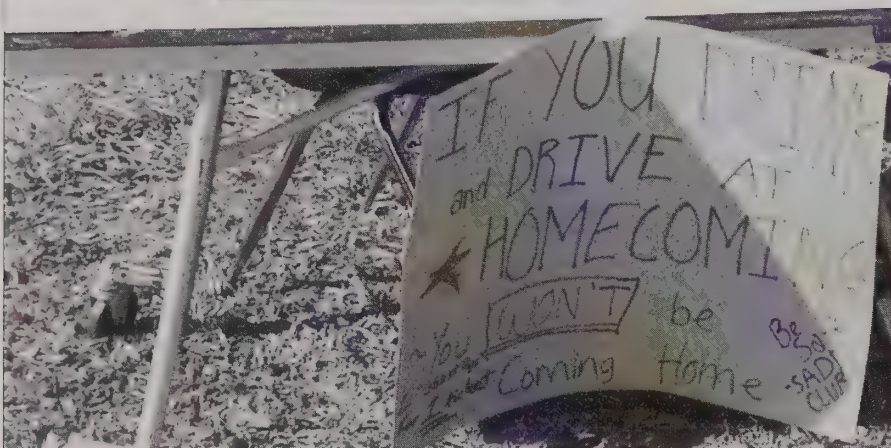 IF YOU DRINK
and DRIVE AT
HOMECOMING
You WON'T be
Coming Home
SADD
CLUB